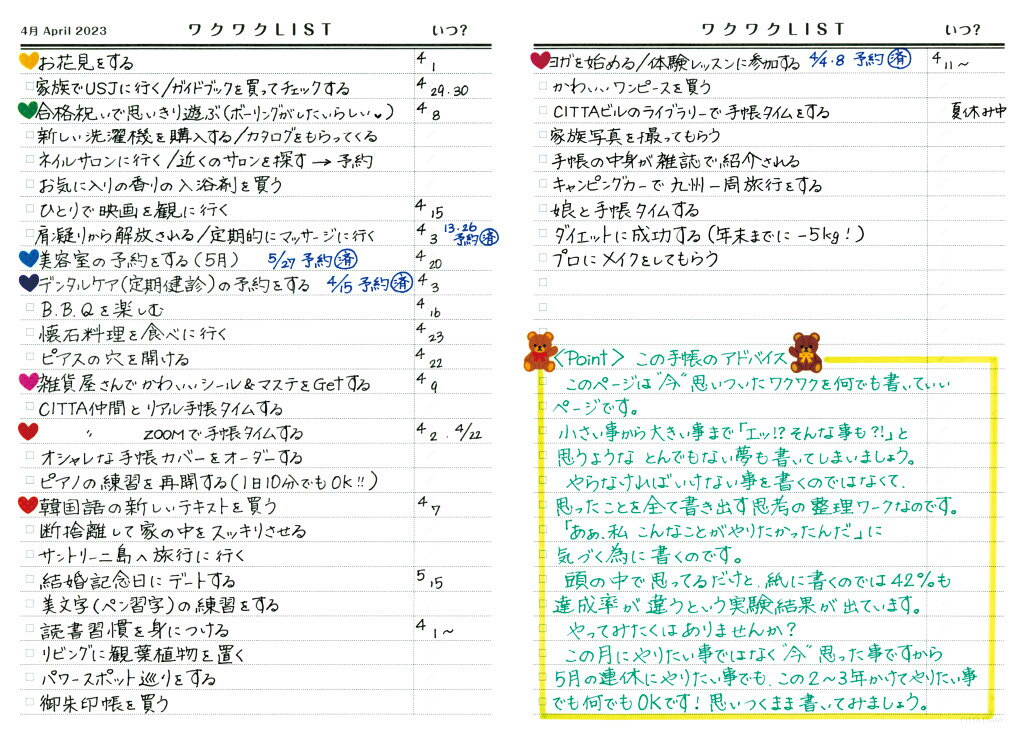 4月 April 2023 ワクワクLIST いつ?
お花見をする 4/1
家族でUSJに行く/ガイドブックを買ってチェックする 4/29.30
合格祝いで思いきり遊ぶ(ボーリングがしたいらしい♥) 4/8
新しい洗濯機を購入する/カタログをもらってくる
ネイルサロンに行く/近くのサロンを探す→予約
お気に入りの香りの入浴剤を買う
ひとりで映画を観に行く 4/15
肩凝りから解放される/定期的にマッサージに行く 4/3 13.26 予約済
美容室の予約をする(5月) 5/27 予約済 4/20
デンタルケア(定期健診)の予約をする 4/15 予約済 4/3
B.B.Qを楽しむ 4/16
懐石料理を食べに行く 4/23
ピアスの穴を開ける 4/22
雑貨屋さんでかわいいシール&マステをGetする 4/9
CITTA仲間とリアル手帳タイムする
〃 ZOOMで手帳タイムする 4/2. 4/22
オシャレな手帳カバーをオーダーする
ピアノの練習を再開する(1日10分でもOK!!)
韓国語の新しいテキストを買う 4/7
断捨離して家の中をスッキリさせる
サントリーニ島へ旅行に行く
結婚記念日にデートする 5/15
美文字(ペン習字)の練習をする
読書習慣を身につける 4/1~
リビングに観葉植物を置く
パワースポット巡りをする
御朱印帳を買う
ワクワクLIST いつ?
ヨガを始める/体験レッスンに参加する 4/4.8 予約済 4/11~
かわいいワンピースを買う
CITTAビルのライブラリーで手帳タイムをする 夏休み中
家族写真を撮ってもらう
手帳の中身が雑誌で紹介される
キャンピングカーで九州一周旅行をする
娘と手帳タイムする
ダイエットに成功する(年末までに-5kg!)
プロにメイクをしてもらう
<Point> この手帳のアドバイス
このページは"今"思いついたワクワクを何でも書いていい
ページです。
小さい事から大きい事まで「エッ!?そんな事も?!」と
思うような とんでもない夢も書いてしまいましょう。
やらなければいけない事を書くのではなくて、
思ったことを全て書き出す思考の整理ワークなのです。
「あぁ、私 こんなことがやりたかったんだ」に
気づく為に書くのです。
頭の中で思ってるだけと、紙に書くのでは42%も
達成率が違うという実験結果が出ています。
やってみたくはありませんか?
この月にやりたい事ではなく"今"思った事ですから
5月の連休にやりたい事でも、この2~3年かけてやりたい事
でも何でもOKです!思いつくまま書いてみましょう。